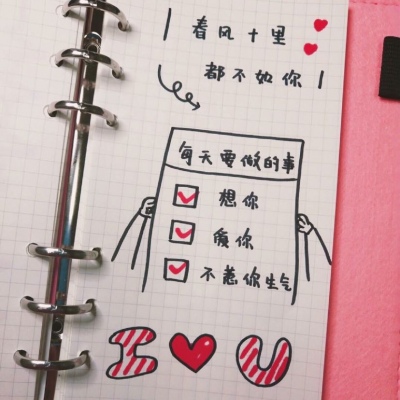 春风十里
都不如你
每天要做的事
想你
爱你
不惹你生气
I ❤ U